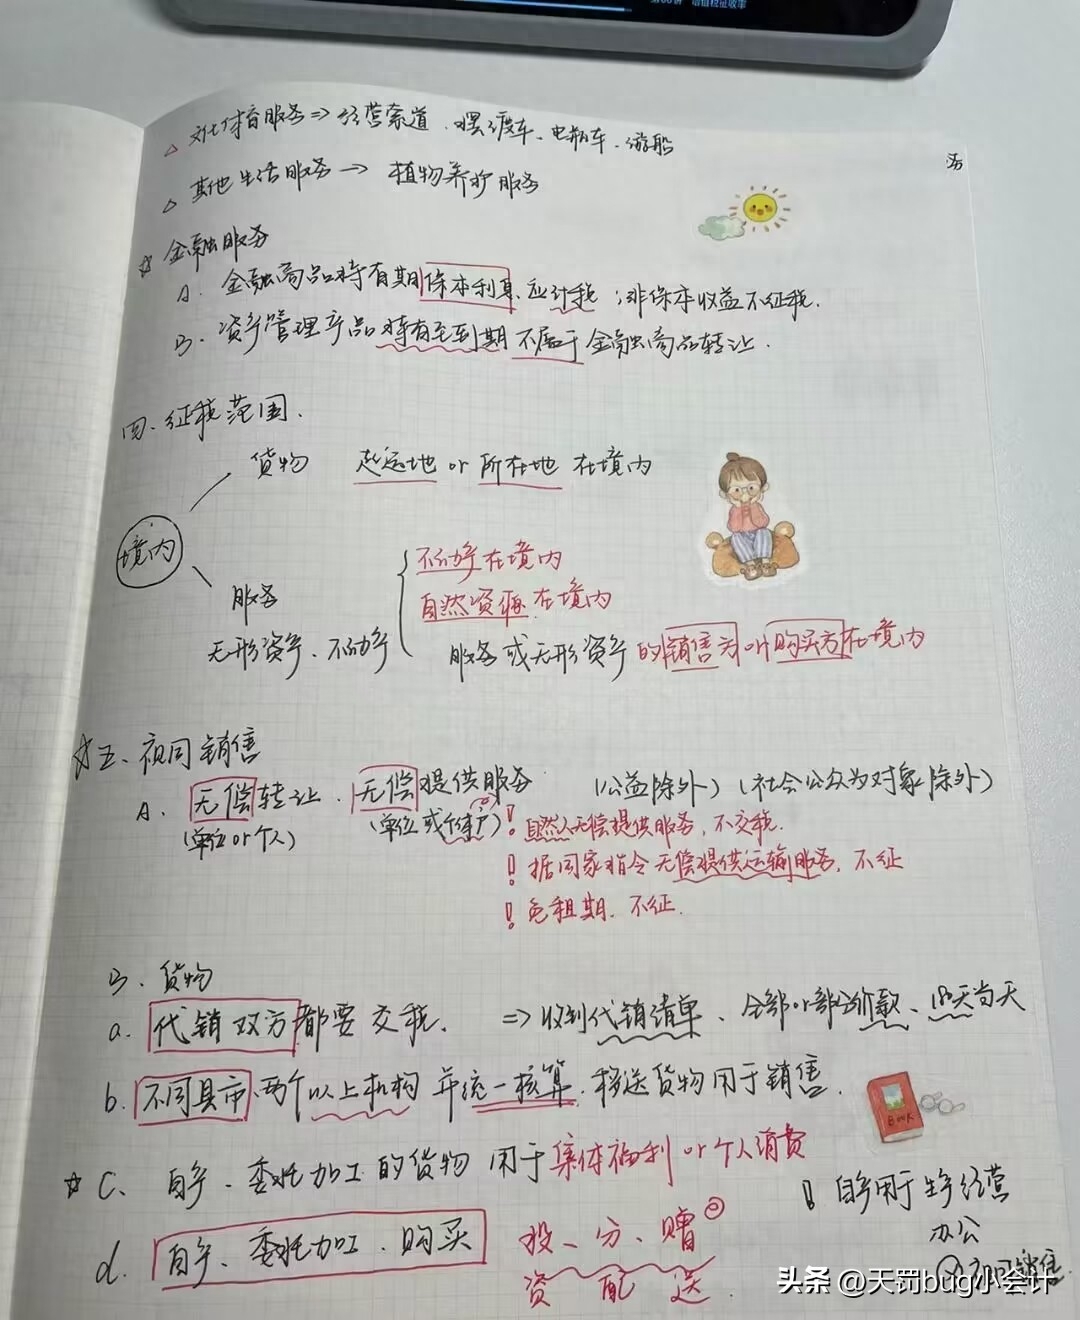 增值税征收率
△ 文化体育服务 => 经营索道、摆渡车、电瓶车、游船
△ 其他生活服务 → 植物养护服务
☆ 金融服务
A. 金融商品持有期保本利息、应计税；非保本收益不征税.
B. 资产管理产品持有至到期 不属于 金融商品转让.
四、征税范围.
货物 起运地 or 所在地 在境内
境内
不动产在境内
服务
自然资源在境内
无形资产、不动产
服务或无形资产的销售方or购买方在境内
☆五、视同销售
A. 无偿转让、无偿提供服务 (公益除外) (社会公众为对象除外)
(单位or个人) (单位或个体户) ! 自然人无偿提供服务, 不交税.
! 据国家指令无偿提供运输服务, 不征
! 免租期, 不征.
B. 货物
a. 代销双方都要交税. => 收到代销清单、全部or部分价款、180天当天
b. 不同县市、两个以上机构 并统一核算, 移送货物用于销售.
BOOK
☆ C、自产、委托加工的货物 用于集体福利or个人消费
! 自产用于生产经营
办公
d. 自产、委托加工、购买 投、分、赠
视同销售
资 配 送.
头条 @天罚bug小会计